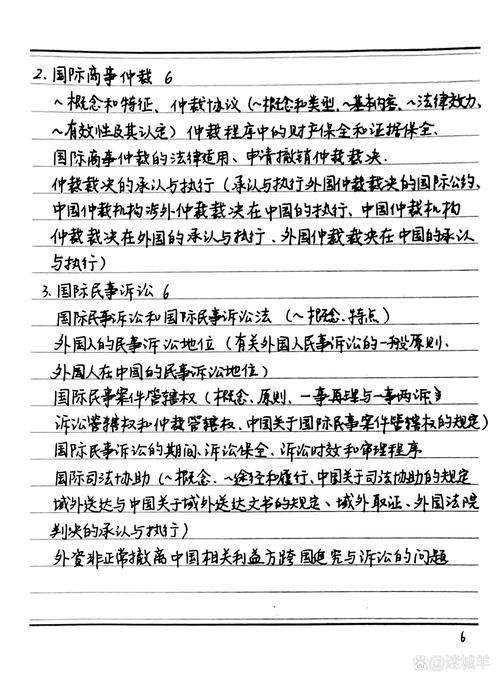 2. 国际商事仲裁 6
~概念和特征、仲裁协议（~概念和类型、~基本内容、~法律效力、
~有效性及其认定）仲裁程序中的财产保全和证据保全、
国际商事仲裁的法律适用、申请撤销仲裁裁决.
仲裁裁决的承认与执行（承认与执行外国仲裁裁决的国际公约、
中国仲裁机构涉外仲裁裁决在中国的执行、中国仲裁机构
仲裁裁决在外国的承认与执行、外国仲裁裁决在中国的承认
与执行）
3. 国际民事诉讼 6
国际民事诉讼和国际民事诉讼法（~概念、特点）
外国人的民事诉讼地位（有关外国人民事诉讼的一般原则、
外国人在中国的民事诉讼地位）
国际民事案件管辖权（概念、原则、一事再理与一事两诉、
诉讼管辖权和仲裁管辖权、中国关于国际民事案件管辖权的规定）
国际民事诉讼的期间、诉讼保全、诉讼时效和审理程序
国际司法协助（~概念、~途径和履行、中国关于司法协助的规定
域外送达与中国关于域外送达文书的规定、域外取证、外国法院
判决的承认与执行）
外资非正常撤离中国相关利益方跨国追究与诉讼的问题
6
@迷城羊